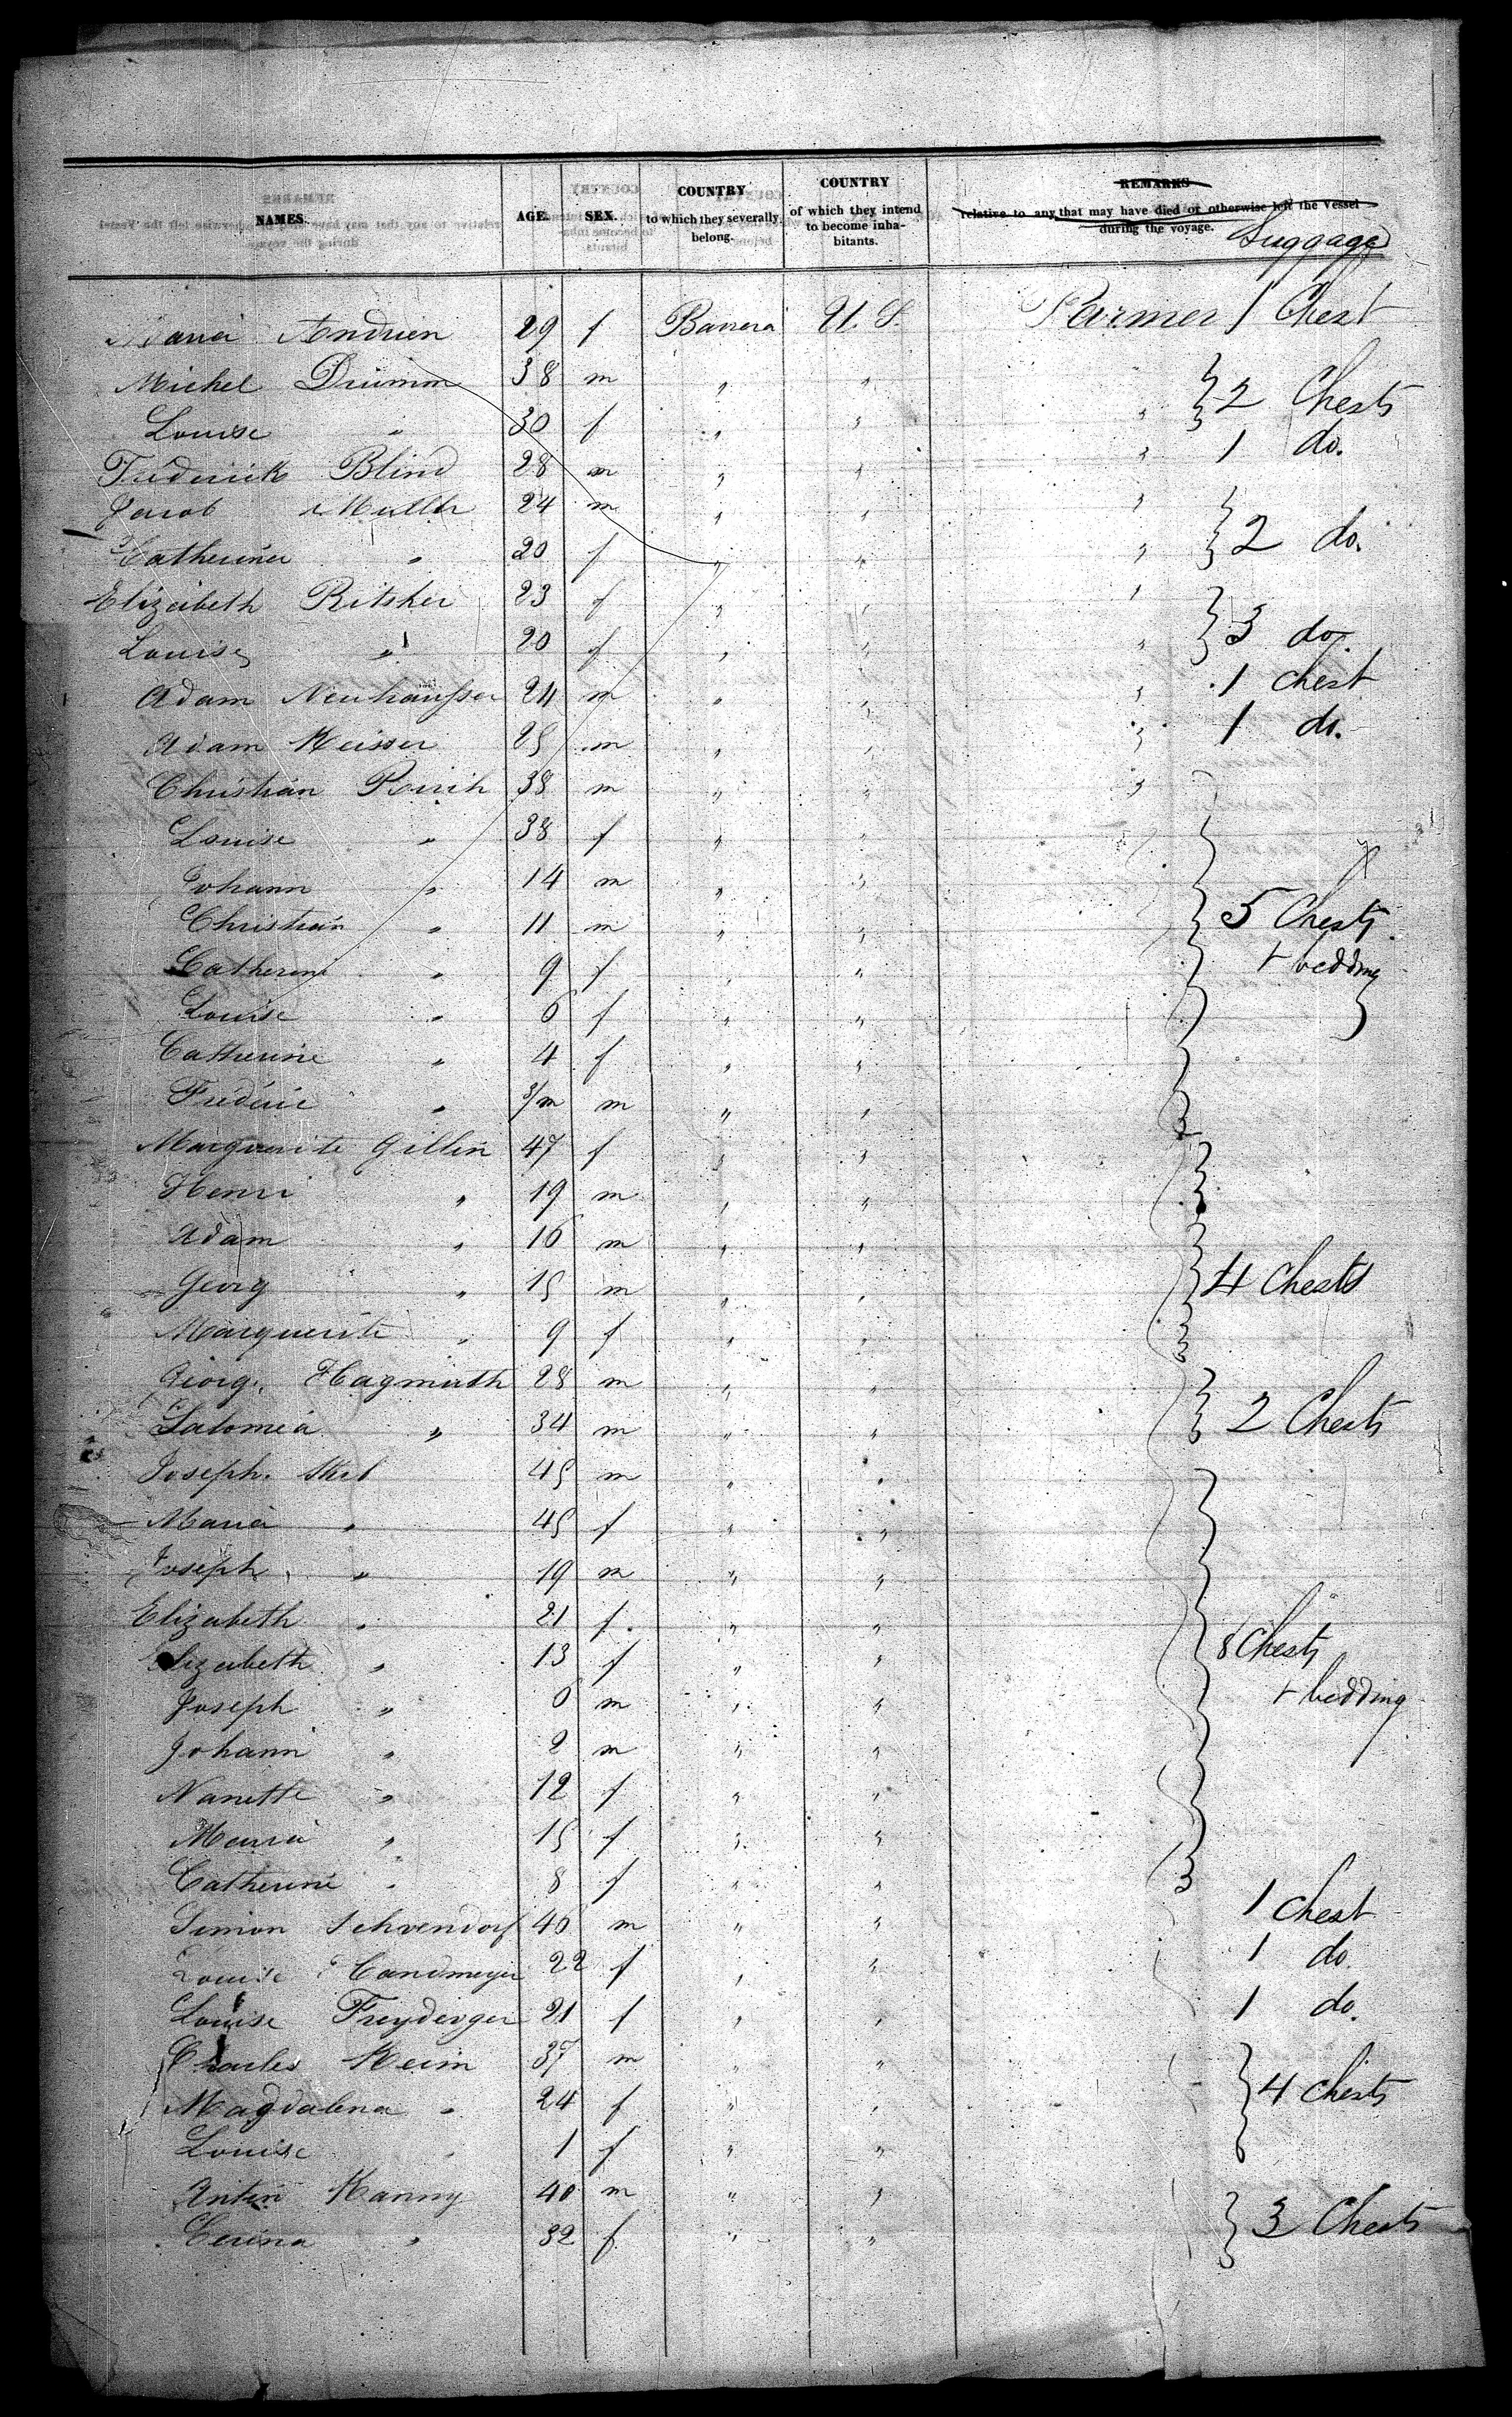 NAMES. AGE. SEX. COUNTRY to which they severally belong. COUNTRY of which they intend to become inhabitants. REMARKS relative to any that may have died or otherwise left the Vessel during the voyage. Luggage
Maria Andrien 29 f Bavaria U. S. Farmer 1 Chest
Michel Drumm 38 m " " "
Louise " 30 f " " " } 2 Chests
Frederick Blind 28 m " " " 1 do.
Jacob Muller 24 m " " "
Catherina " 20 f " " " } 2 do.
Elizabeth Ritsher 23 f " " "
Louise " 20 f " " " } 3 do.
Adam Neuhausser 24 m " " " 1 Chest
Adam Meisser 25 m " " " 1 do.
Christian 38 m " " "
Louise " 38 f " "
Johann " 14 m " "
Christian " 11 m " " } 5 Chests
Catherine " 9 f " " + bedding
Louise " 6 f " "
Catherine " 4 f " "
Frederic " 3/m m " "
Marguerite Gillin 47 f " "
Henri " 19 m " "
Adam " 16 m " "
Georg " 15 m " " } 4 Chests
Marguerite " 9 f " "
Georg. Hagmuth 28 m " "
Salomea " 34 m " " } 2 Chests
Joseph. 45 m " "
Maria " 45 f " "
Joseph. " 19 m " "
Elizabeth " 21 f " "
Elizabeth " 13 f " " 8 Chests
Joseph " 6 m " " + bedding
Johann " 2 m " "
Nanette " 12 f " "
Maria " 15 f " "
Catherine " 8 f " "
Simon Schvendorf 40 m " " 1 Chest
Louise Candmeyer 22 f " " 1 do.
Louise Freyderger 21 f " " 1 do.
Charles Keim 37 m " "
Magdalena " 24 f " " } 4 Chests
Louise " 1 f " "
Anton Kanny 40 m " "
" 32 f " " } 3 Chests